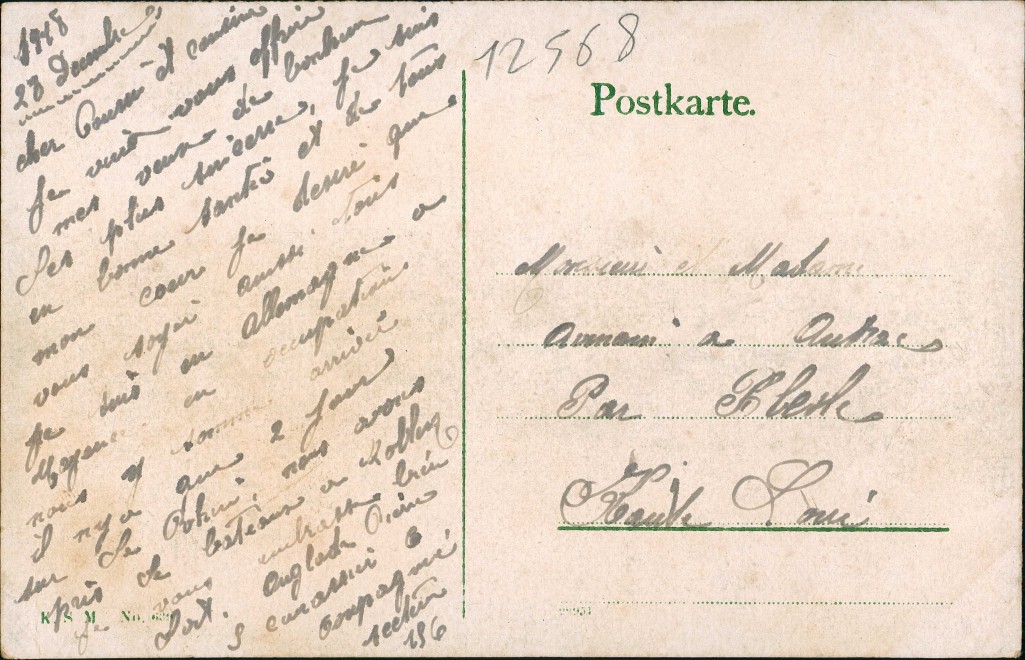 1918
28 Decembre
cher Cousin et cousine
Je vient vous offrir
mes veux de bonheur
Les plus sincerre, Je suis
en bonne santé et de tous
mon coeur Je desire que
vous soyer aussi tous
Je suis en Allemagne a
Mayence en occupation
nous y somme arrivée
il n'y a que 2 Jour
sur Le Rhin, nous avons
pris Le bateaux a Koblenz
Je vous embrasse bien
fort. Anglade Pierre
5 cuirassier 6
compagnie
secteur
196
K. S. M. No.
12568
Postkarte.
Monsieur et Madame
a
Par Blesle
Haute Loire